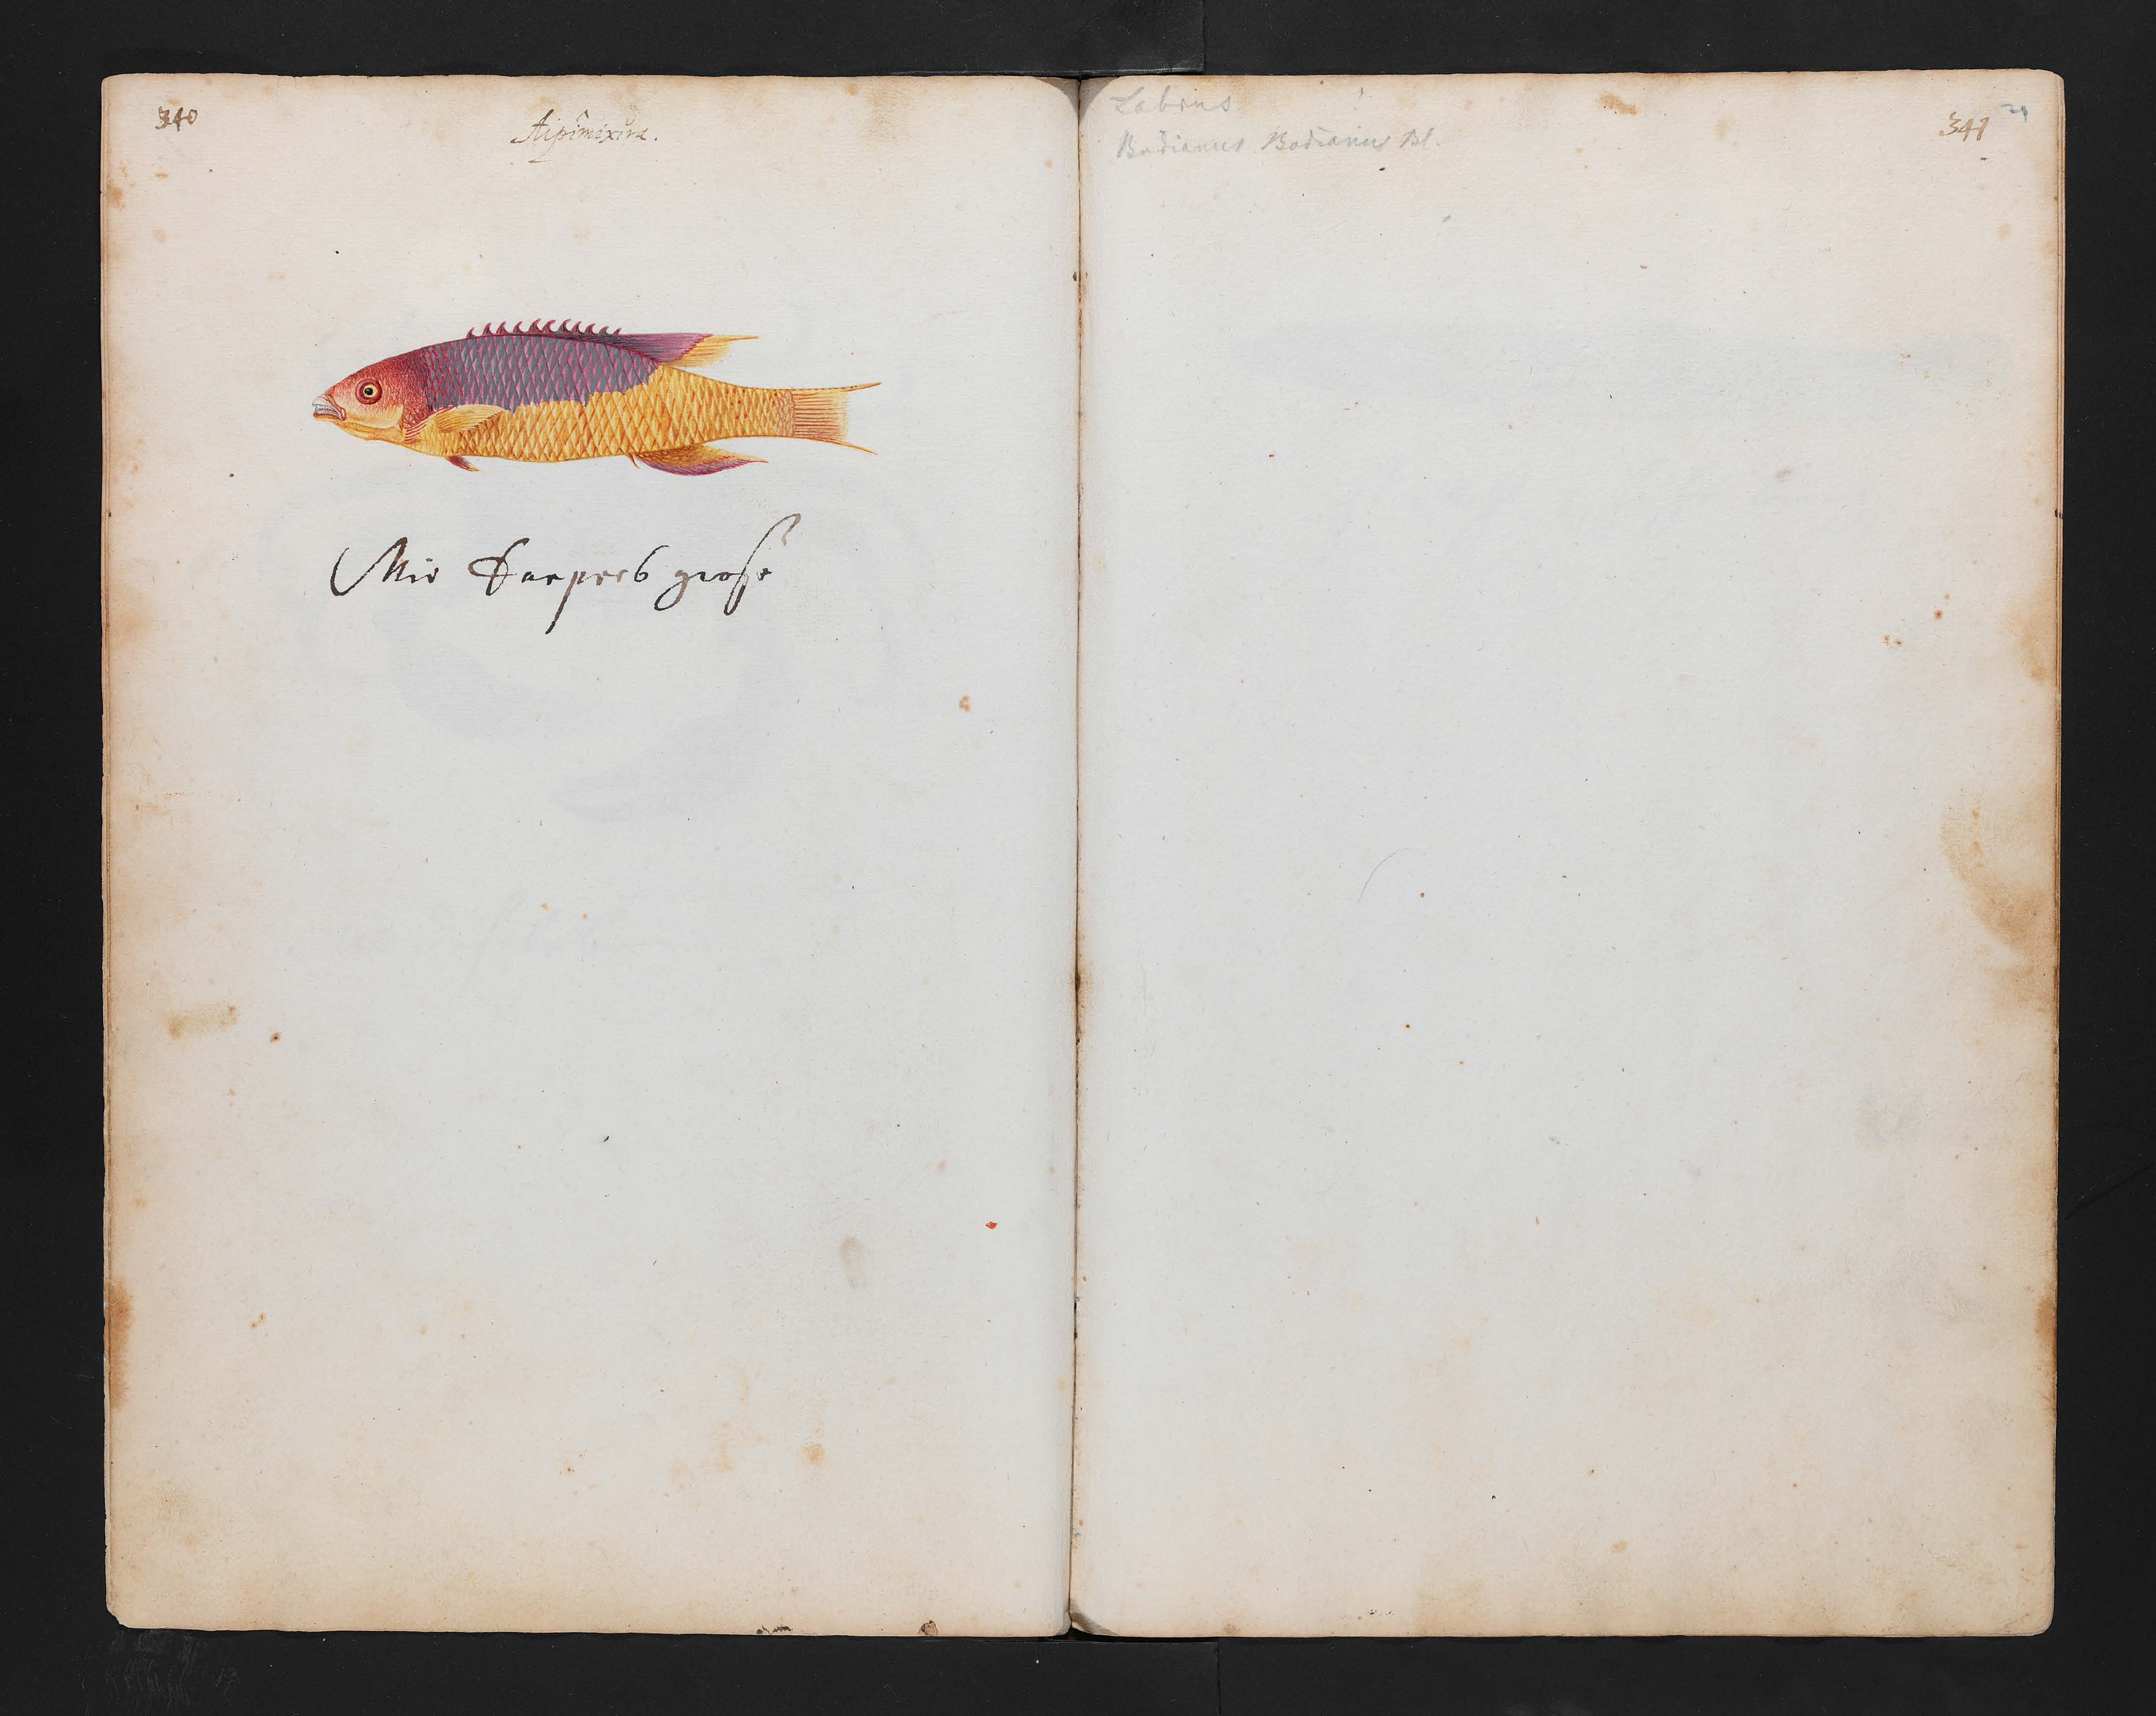 340
Aipimixira.
Wie Karpers große
Labrus
Bodianus Bodianus Bl.
341